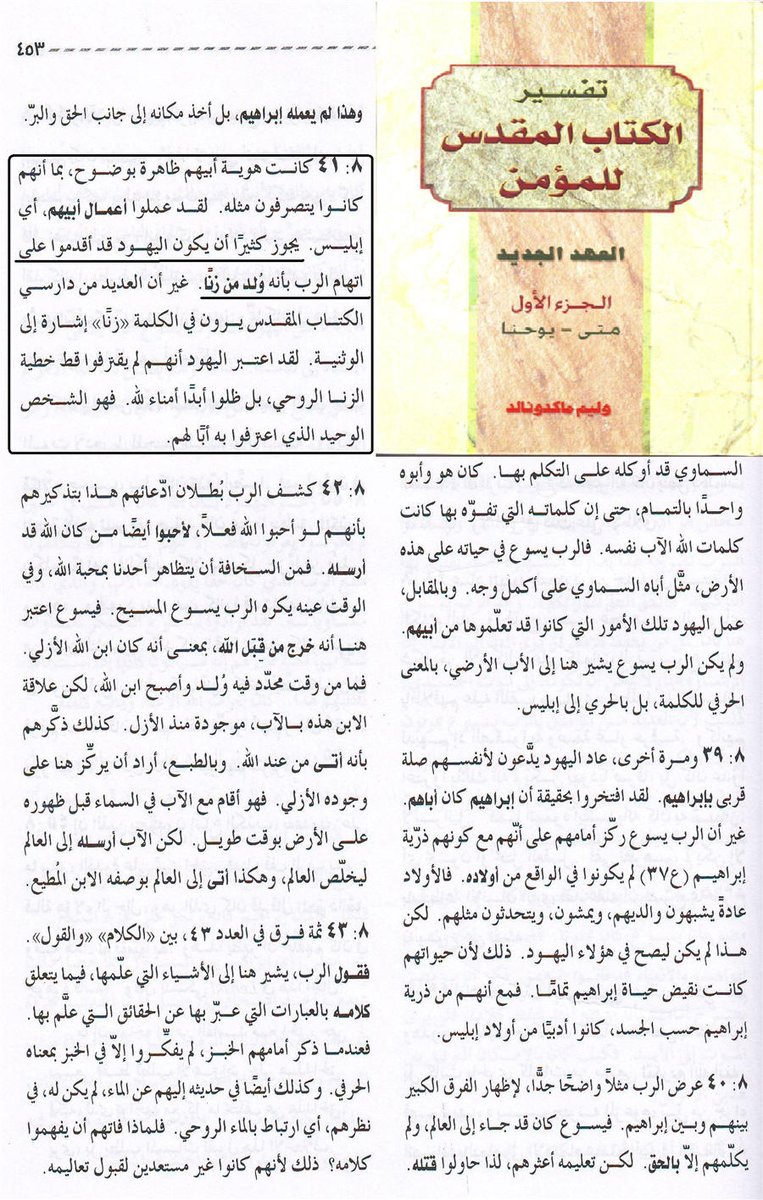 تفسير
الكتاب المقدس
للمؤمن
العهد الجديد
الجزء الأول
متى – يوحنا
وليم ماكدونالد
السماوي قد أوكله على التكلم بها. كان هو وأبوه
واحدًا بالتمام، حتى إن كلماته التي تفوّه بها كانت
كلمات الله الآب نفسه. فالرب يسوع في حياته على هذه
الأرض، مثَّل أباه السماوي على أكمل وجه. وبالمقابل،
عمل اليهود تلك الأمور التي كانوا قد تعلّموها من أبيهم.
ولم يكن الرب يسوع يشير هنا إلى الأب الأرضي، بالمعنى
الحرفي للكلمة، بل بالحري إلى إبليس.
٨: ٣٩ ومرة أخرى، عاد اليهود يدَّعون لأنفسهم صلة
قربى بإبراهيم. لقد افتخروا بحقيقة أن إبراهيم كان أباهم.
غير أن الرب يسوع ركّز أمامهم على أنّهم مع كونهم ذرّية
إبراهيم (ع٣٧) لم يكونوا في الواقع من أولاده. فالأولاد
عادةً يشبهون والديهم، ويمشون، ويتحدثون مثلهم. لكن
هذا لم يكن ليصح في هؤلاء اليهود. ذلك لأن حيواتهم
كانت نقيض حياة إبراهيم تمامًا. فمع أنهم من ذرية
إبراهيم حسب الجسد، كانوا أدبيًا من أولاد إبليس.
٨: ٤٠ عرض الرب مثلاً واضحًا جدًّا، لإظهار الفرق الكبير
بينهم وبين إبراهيم. فيسوع كان قد جاء إلى العالم، ولم
يكلّمهم إلاّ بالحق. لكن تعليمه أعثرهم، لذا حاولوا قتله.
٤٥٣
وهذا لم يعمله إبراهيم، بل أخذ مكانه إلى جانب الحق والبرّ.
٨: ٤١ كانت هوية أبيهم ظاهرة بوضوح، بما أنهم
كانوا يتصرفون مثله. لقد عملوا أعمال أبيهم، أي
إبليس. يجوز كثيرًا أن يكون اليهود قد أقدموا على
اتهام الرب بأنه وُلد من زنًا. غير أن العديد من دارسي
الكتاب المقدس يرون في الكلمة «زنًا» إشارة إلى
الوثنية. لقد اعتبر اليهود أنهم لم يقترفوا قط خطية
الزنا الروحي، بل ظلوا أبدًا أمناء لله. فهو الشخص
الوحيد الذي اعترفوا به أبًا لهم.
٨: ٤٢ كشف الرب بُطلان ادّعائهم هذا بتذكيرهم
بأنهم لو أحبوا الله فعلاً، لأحبوا أيضًا من كان الله قد
أرسله. فمن السخافة أن يتظاهر أحدنا بمحبة الله، وفي
الوقت عينه يكره الرب يسوع المسيح. فيسوع اعتبر
هنا أنه خرج من قِبَل الله، بمعنى أنه كان ابن الله الأزلي.
فما من وقت محدّد فيه وُلد وأصبح ابن الله، لكن علاقة
الابن هذه بالآب، موجودة منذ الأزل. كذلك ذكَّرهم
بأنه أتى من عند الله. وبالطبع، أراد أن يركّز هنا على
وجوده الأزلي. فهو أقام مع الآب في السماء قبل ظهوره
على الأرض بوقت طويل. لكن الآب أرسله إلى العالم
ليخلّص العالم، وهكذا أتى إلى العالم بوصفه الابن المُطيع.
٨: ٤٣ ثمة فرق في العدد ٤٣، بين «الكلام» والقول».
فقول الرب، يشير هنا إلى الأشياء التي علّمها، فيما يتعلق
كلامه بالعبارات التي عبّر بها عن الحقائق التي علَّم بها.
فعندما ذكر أمامهم الخبز، لم يفكّروا إلاّ في الخبز بمعناه
الحرفي. وكذلك أيضًا في حديثه إليهم عن الماء، لم يكن له، في
نظرهم، أي ارتباط بالماء الروحي. فلماذا فاتهم أن يفهموا
كلامه؟ ذلك لأنهم كانوا غير مستعدين لقبول تعاليمه.